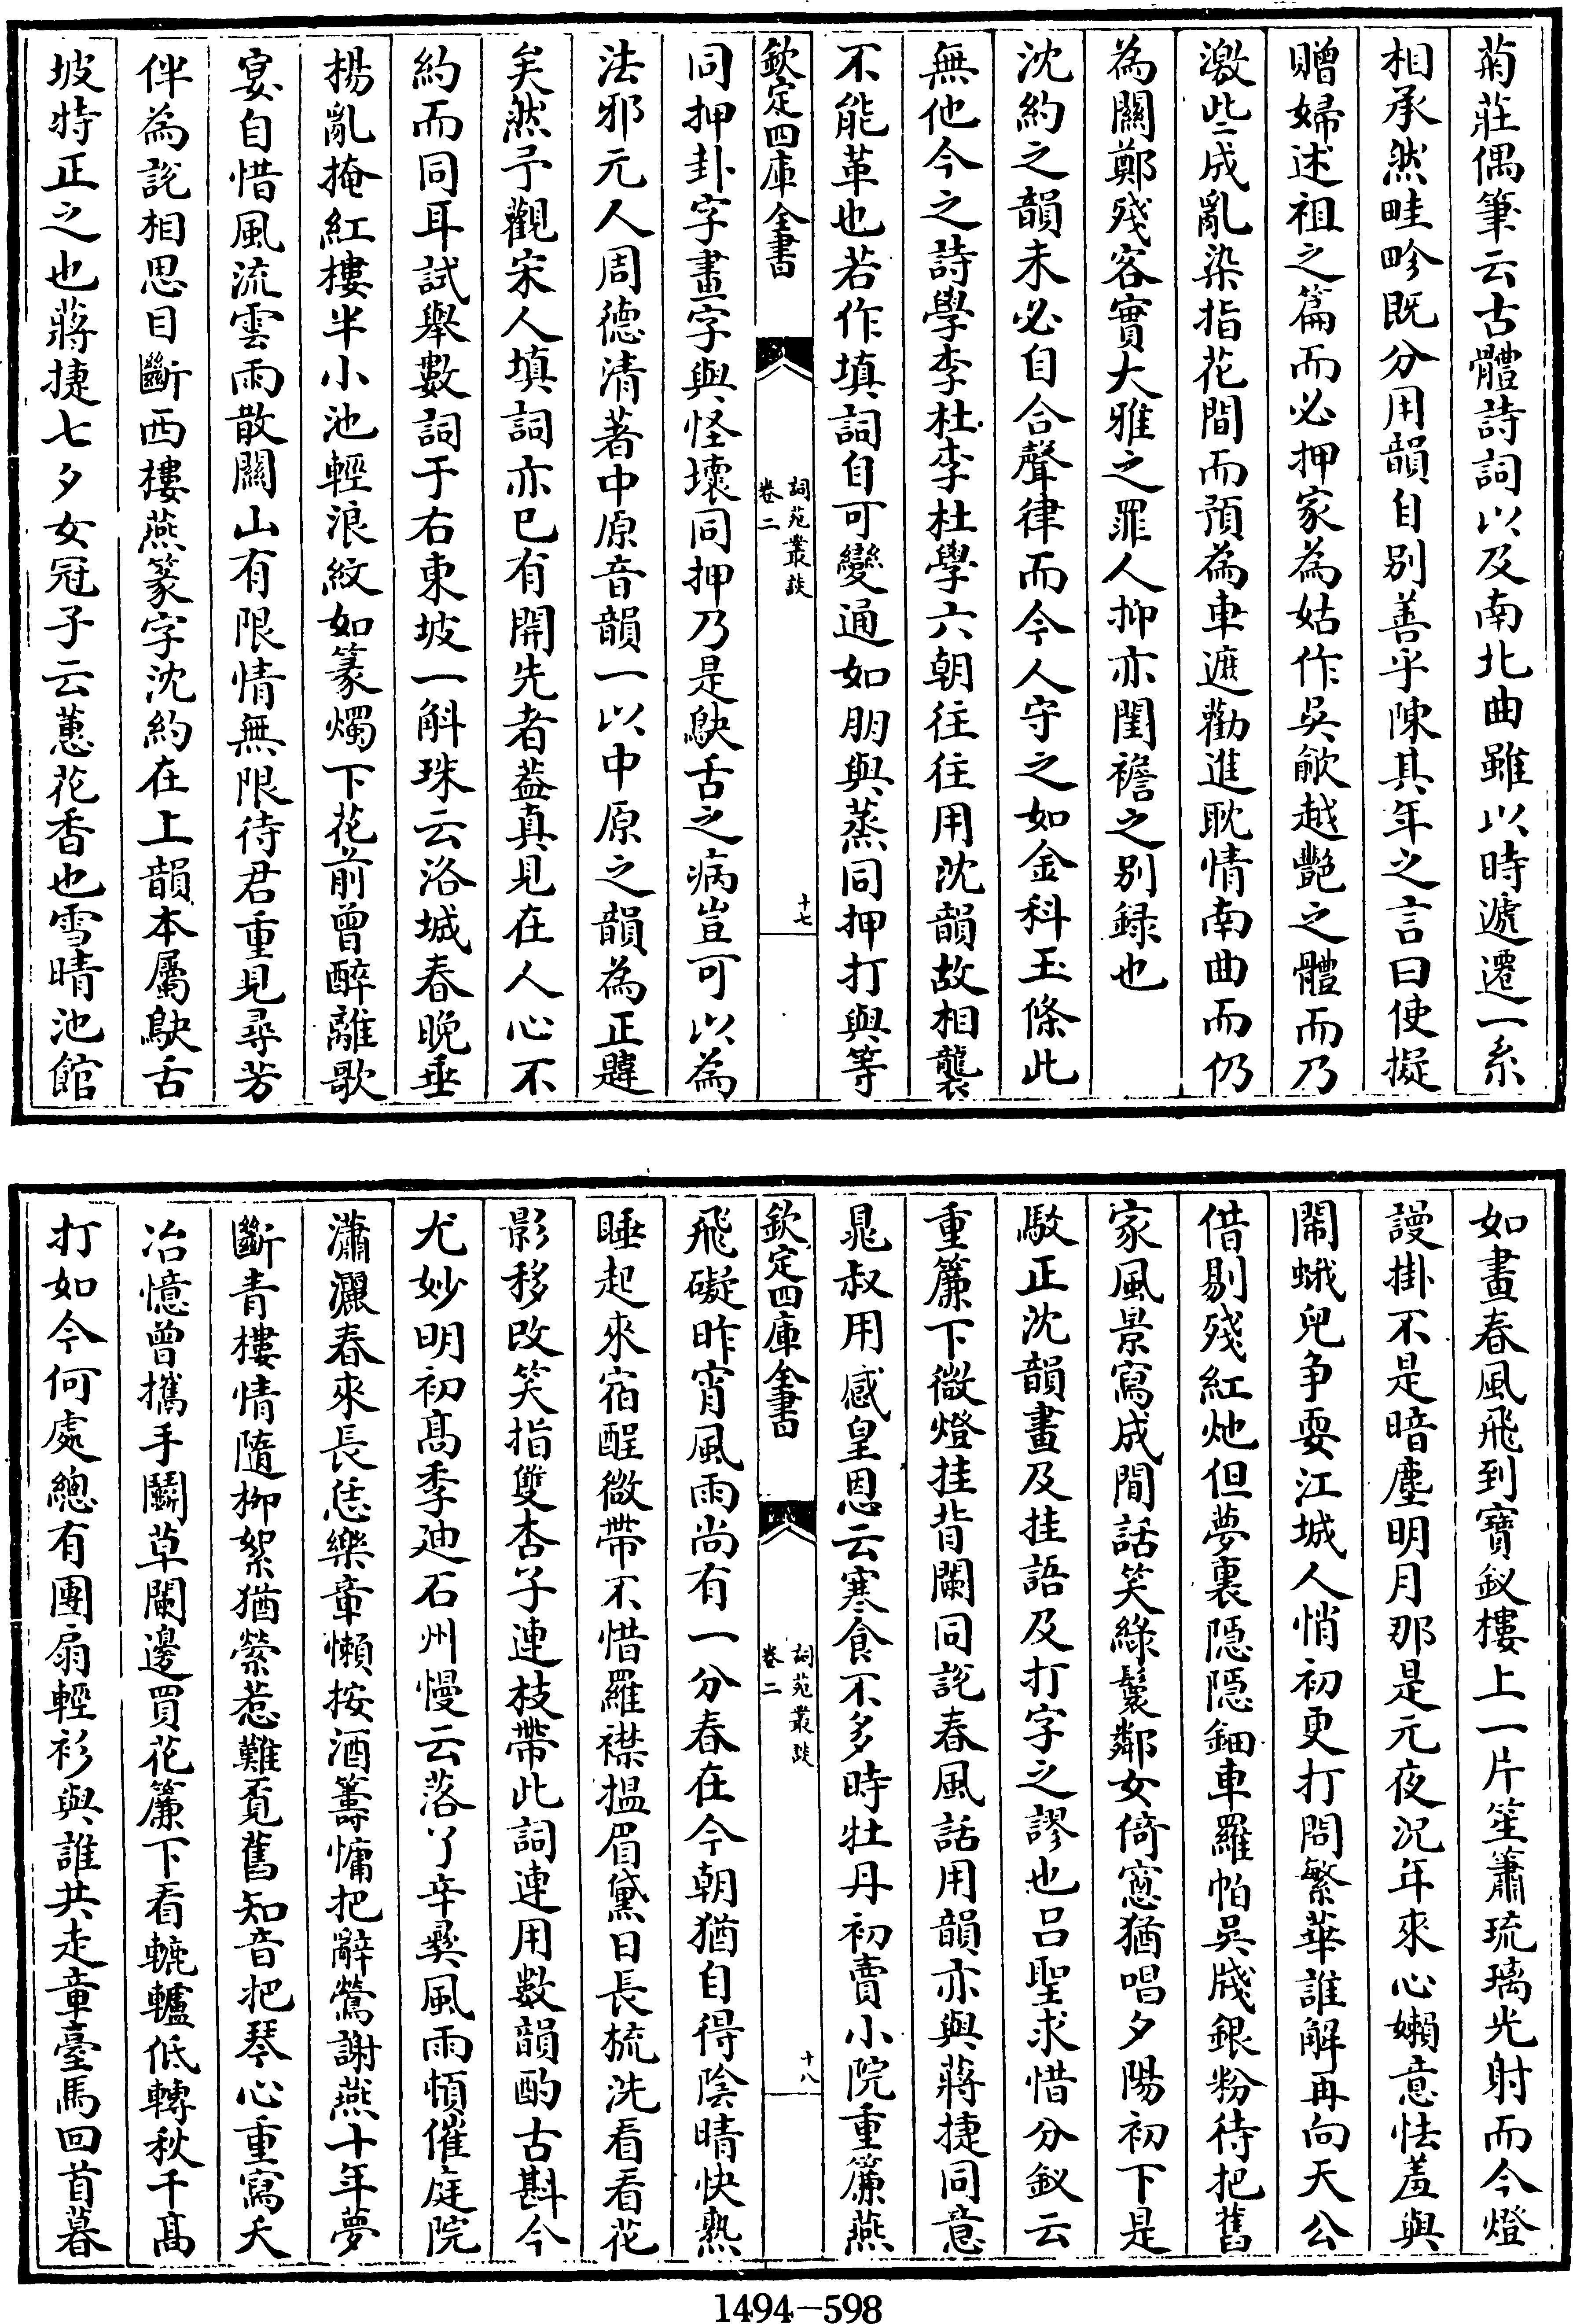 菊莊偶筆云古體詩詞以及南北曲雖以時遞遷一系
相承然畦畛既分用韻自别善乎陳其年之言曰使擬
贈婦述祖之篇而必押家為姑作吳歈越艷之體而乃
激些成亂染指花間而預為車遮勸進耽情南曲而仍
為關鄭殘客實大雅之罪人抑亦閨襜之别録也
沈約之韻未必自合聲律而今人守之如金科玉條此
無他今之詩學李杜李杜學六朝往往用沈韻故相襲
不能革也若作填詞自可變通如朋與蒸同押打與等
欽定四庫全書
詞苑叢談
卷二
十七
同押卦字畫字與怪壞同押乃是鴃舌之病豈可以為
法邪元人周德清著中原音韻一以中原之韻為正韙
矣然予觀宋人填詞亦已有開先者葢真見在人心不
約而同耳試舉數詞于右東坡一斛珠云洛城春晚垂
楊亂掩紅樓半小池輕浪紋如篆燭下花前曾醉離歌
宴自惜風流雲雨散關山有限情無限待君重見尋芳
伴為說相思目斷西樓燕篆字沈約在上韻本屬鴃舌
坡特正之也蔣捷七夕女冠子云蕙花香也雪晴池館
如畫春風飛到寶釵樓上一片笙簫琉璃光射而今燈
謾掛不是暗塵明月那是元夜況年來心嬾意怯羞與
鬧蛾兒争耍江城人悄初更打問繁華誰解再向天公
借剔殘紅灺但夢裏隱隱鈿車羅帕吳牋銀粉待把舊
家風景寫成閒話笑綠鬟鄰女倚窻猶唱夕陽初下是
駁正沈韻畫及挂語及打字之謬也呂聖求惜分釵云
重簾下微燈挂背闌同說春風話用韻亦與蔣捷同意
晁叔用感皇恩云寒食不多時牡丹初賣小院重簾燕
欽定四庫全書
詞苑叢談
卷二
十八
飛礙昨宵風雨尚有一分春在今朝猶自得陰晴快熟
睡起來宿酲微帶不惜羅襟搵眉黛日長梳洗看看花
影移改笑指雙杏子連枝帶此詞連用數韻酌古斟今
尤妙明初髙季廸石州慢云落了辛彛風雨頓催庭院
瀟灑春來長恁樂章懶按酒籌慵把辭鶯謝燕十年夢
斷青樓情隨柳絮猶縈惹難覓舊知音把琴心重寫夭
冶憶曾攜手鬭草闌邊買花簾下看轆轤低轉秋千髙
打如今何處總有團扇輕衫與誰共走章臺馬回首暮
1494—598